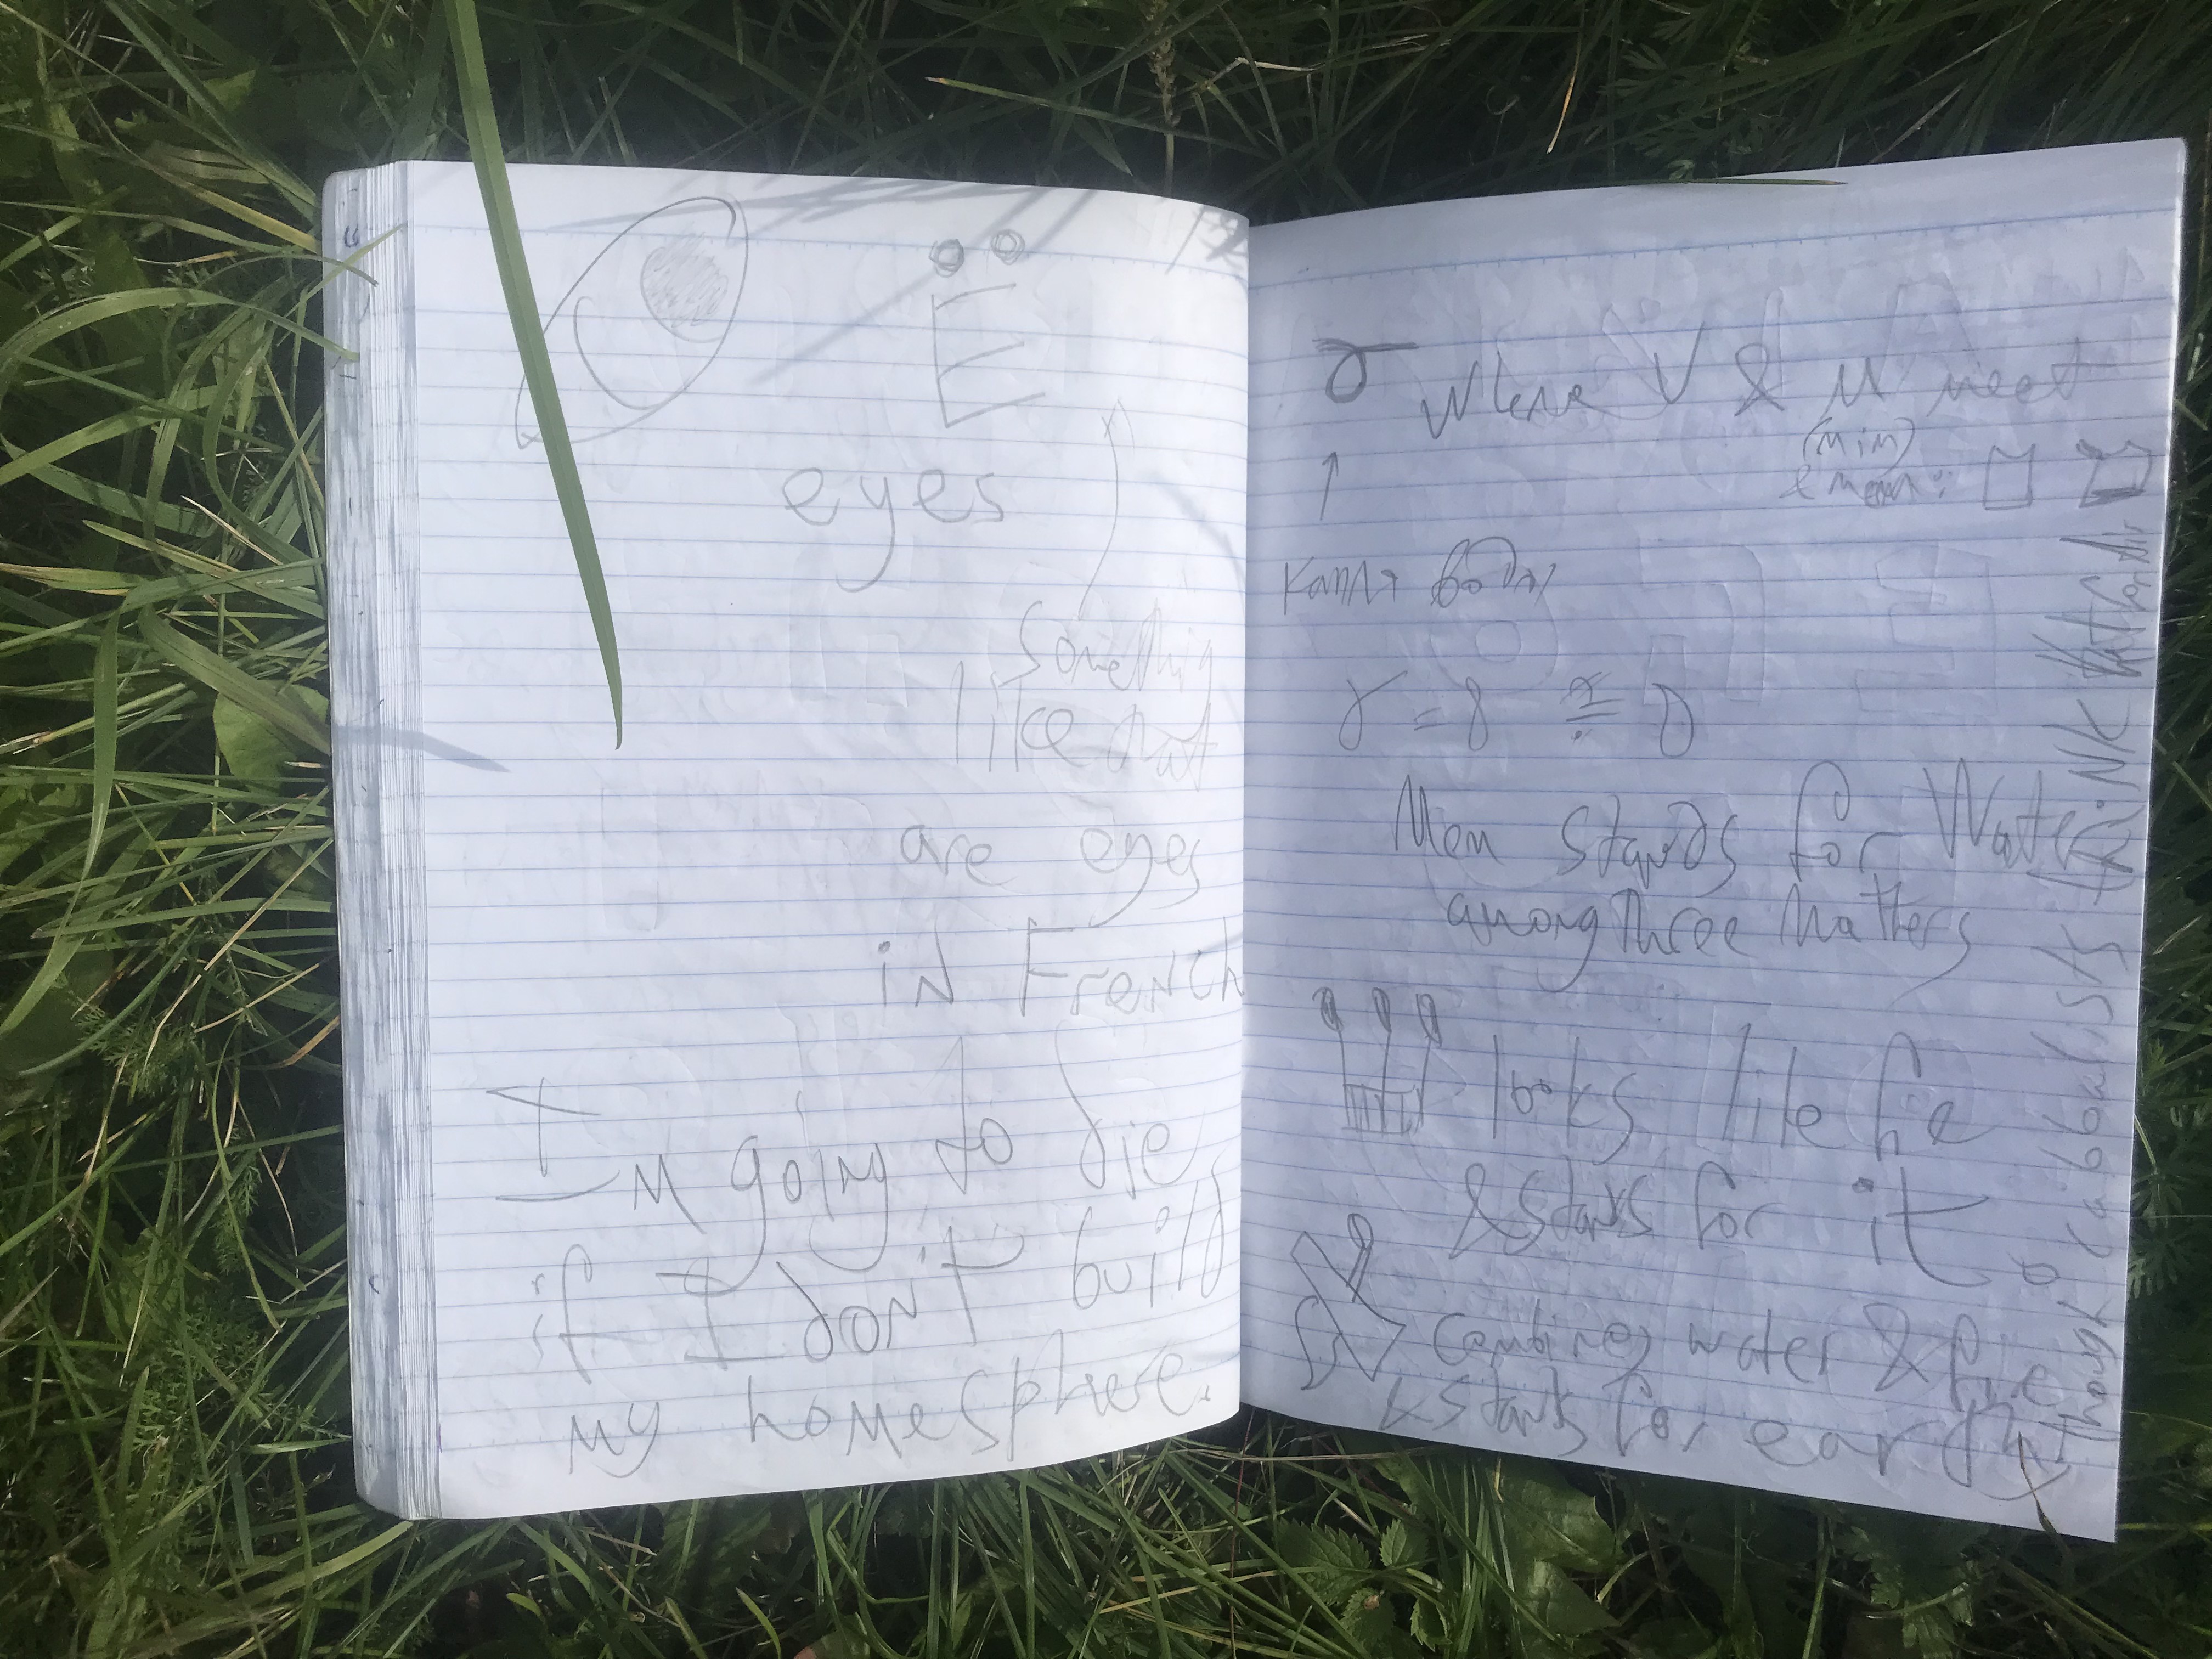 Ë
eyes
Something
like that
are eyes
in French
I
I_M going to die
if I don't build
my homesphere.
σ Where V & M meet
↑ (min)
Kamma body
γ = 8 ≅ D
Man stands for Matter
among three mathers
looks like he
& stands for it
combines water & fire
4 stands for earth
Torahy Cabbalists think that